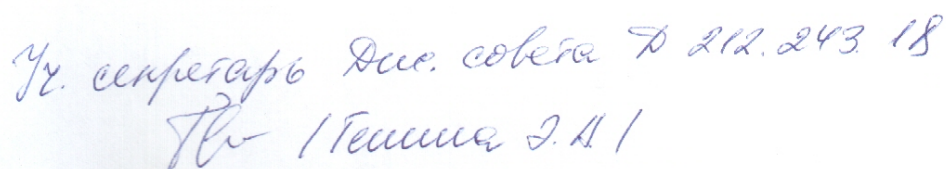 Уч. секретарь Дис. совета Д 212.243.18
/Тяпина Э.А/